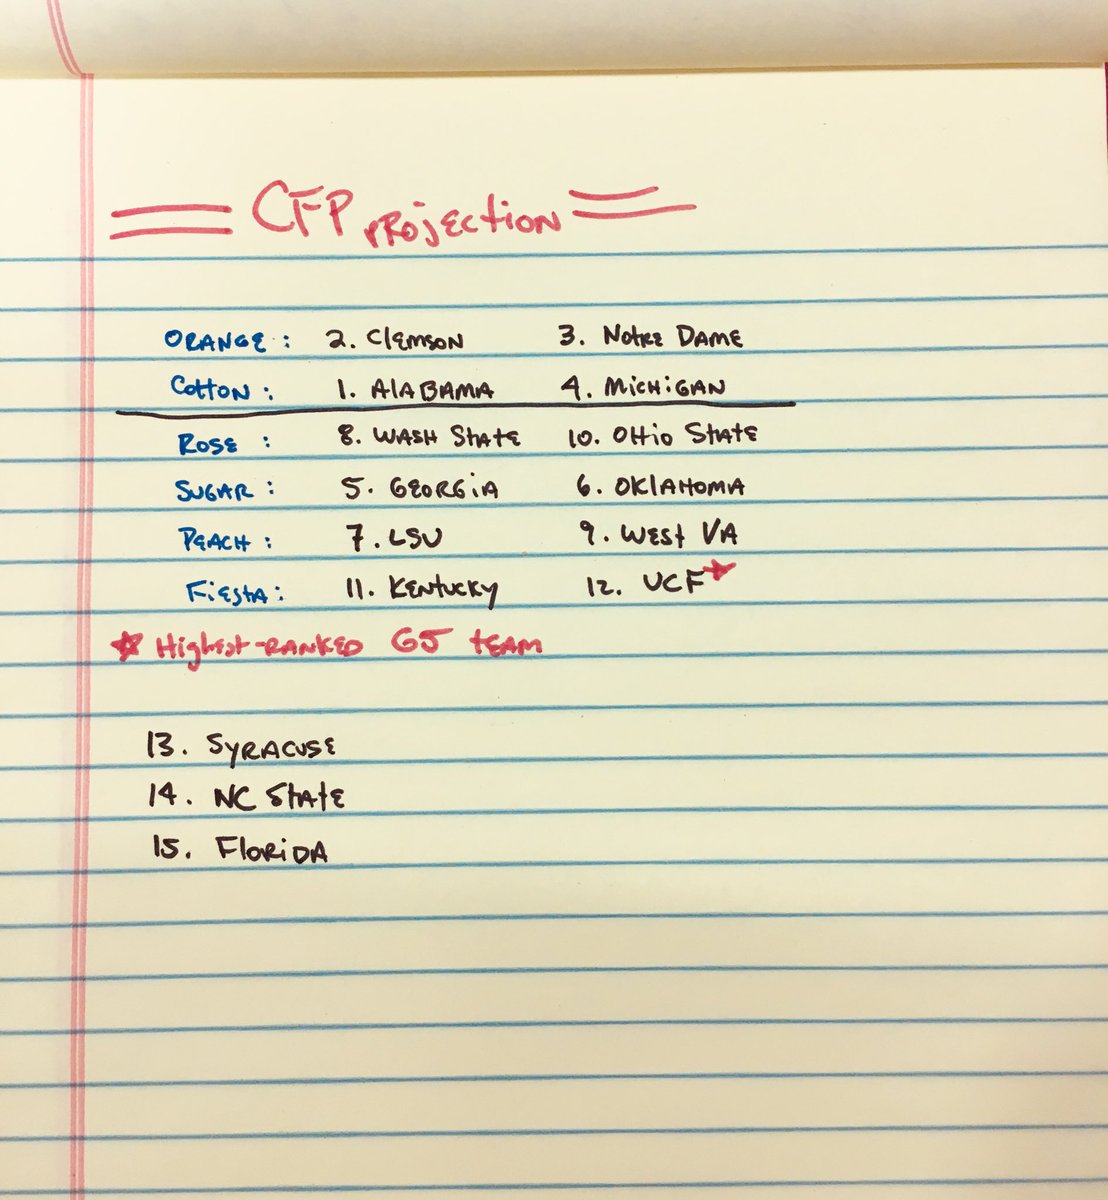 CFP PROJECTION
ORANGE: 2. Clemson 3. Notre Dame
Cotton: 1. Alabama 4. Michigan
Rose: 8. Wash State 10. Ohio State
Sugar: 5. Georgia 6. Oklahoma
Peach: 7. LSU 9. West VA
Fiesta: 11. Kentucky 12. UCF★
★ Highest-ranked G5 team
13. Syracuse
14. NC State
15. Florida